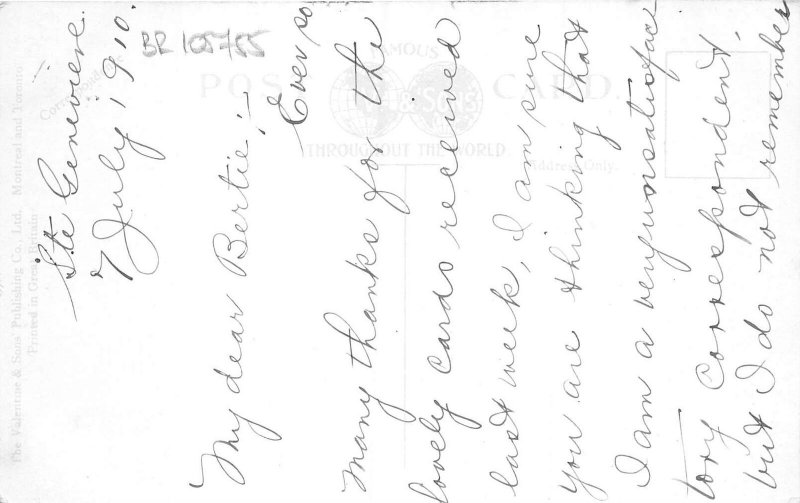 Ste Genevieve
7 July 1910.
My dear Bertie:-
Ever so
many thanks for the
lovely cards received
last week, I am sure
you are thinking that
I am a very unsatisfac
tory correspondent,
but I do not remember
BR 105755
FAMOUS
POST CARD
& Sons
THROUGHOUT THE WORLD
Address Only.
The Valentine & Sons Publishing Co., Ltd., Montreal and Toronto
Printed in Great Britain